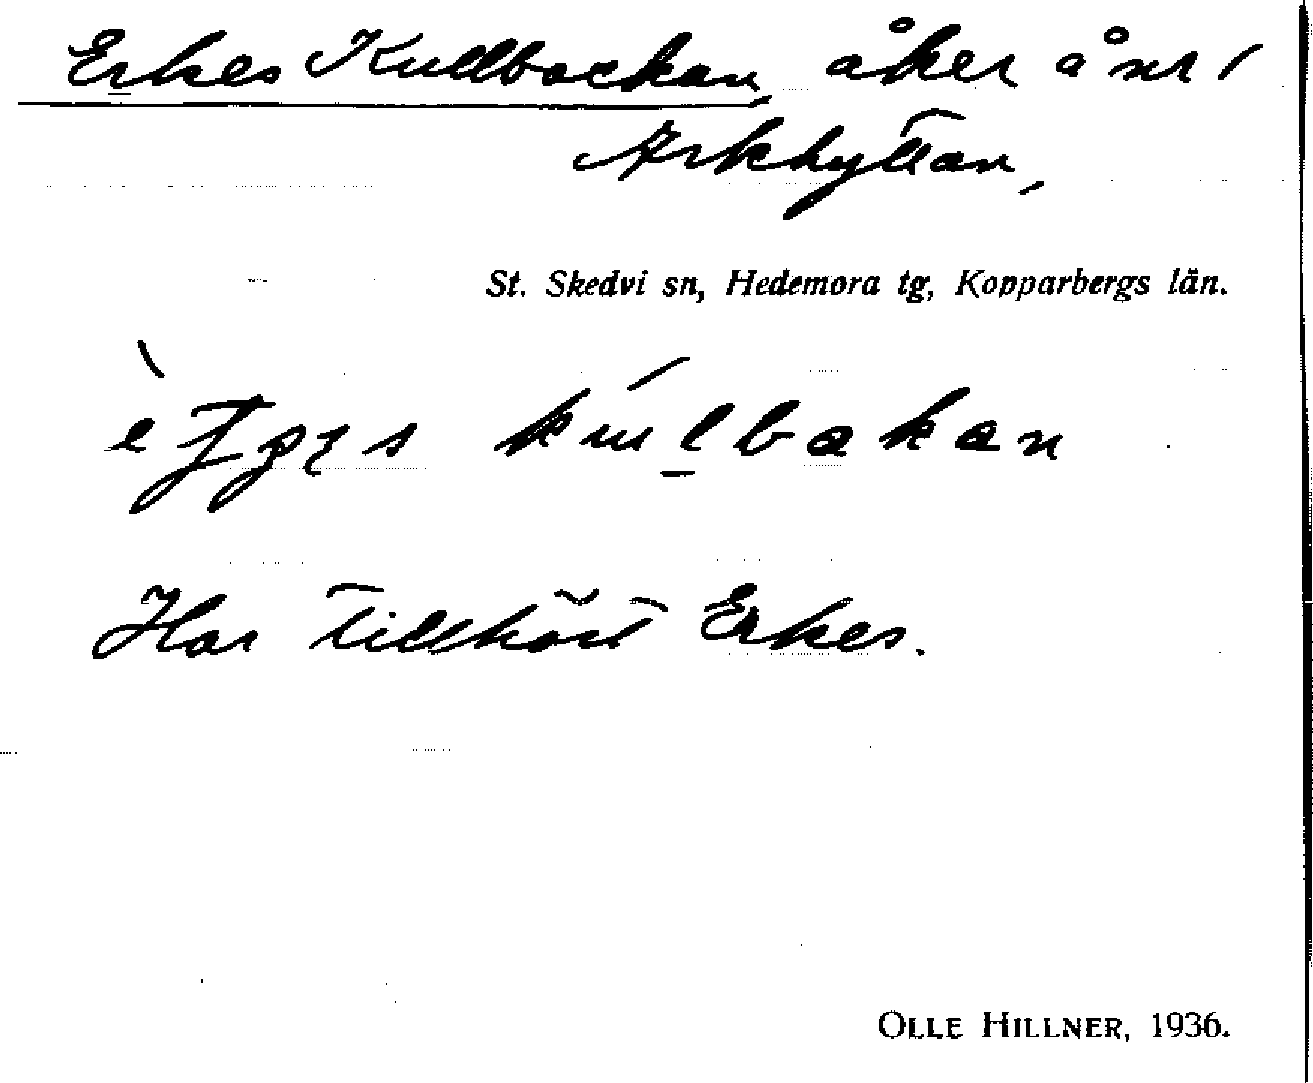 Erkes Kullbackan, åker å nr 1
Arkhyttan,
St. Skedvi sn, Hedemora tg, Kopparbergs län.
kúl̠bakan
Har tillhört Erkes.
OLLE HILLNER, 1936.